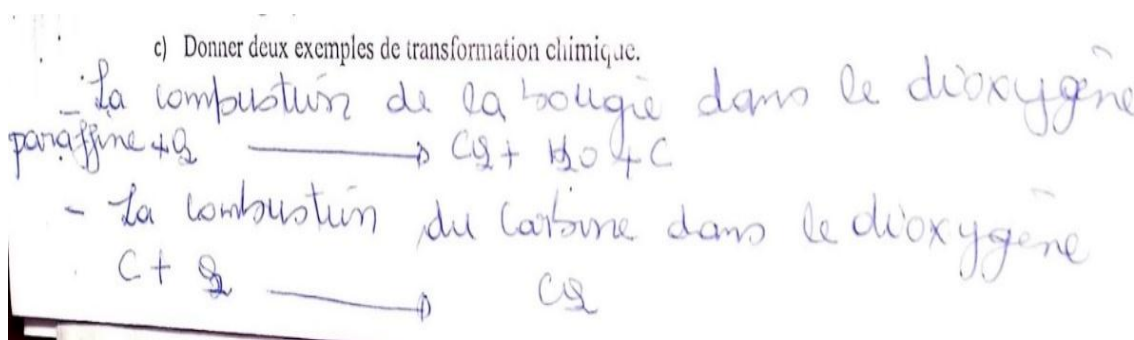 c) Donner deux exemples de transformation chimique.
- La combustion de la bougie dans le dioxygène
paraffine + O₂ ⟶ CO₂ + H₂O + C
- La combustion du Carbone dans le dioxygène
C + O₂ ⟶ CO₂